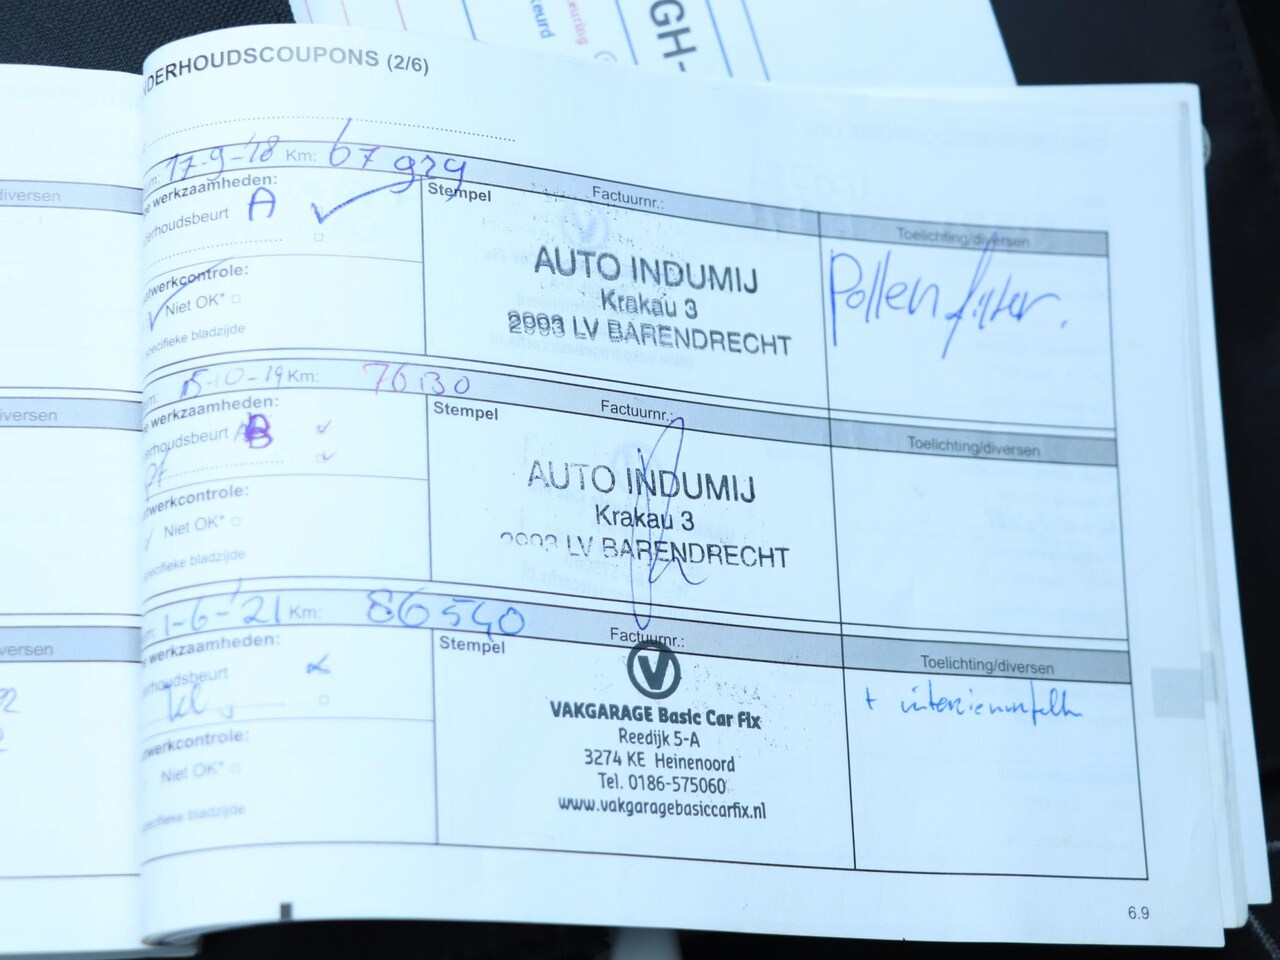 keurd
keuring
GH-
NDERHOUDSCOUPONS (2/6)
17-9-'18 Km: 67929
e werkzaamheden:
erhoudsbeurt A
twerkcontrole:
Niet OK*
specifieke bladzijde
Stempel
Factuurnr.:
AUTO INDUMIJ
Krakau 3
2993 LV BARENDRECHT
Toelichting/diversen
Pollen filter.
15-10-19 Km: 76130
e werkzaamheden:
erhoudsbeurt B
Pf
twerkcontrole:
Niet OK*
specifieke bladzijde
Stempel
Factuurnr.:
AUTO INDUMIJ
Krakau 3
2993 LV BARENDRECHT
Toelichting/diversen
1-6-'21 Km: 86540
e werkzaamheden:
erhoudsbeurt
twerkcontrole:
Niet OK*
specifieke bladzijde
Stempel
Factuurnr.:
V
VAKGARAGE Basic Car Fix
Reedijk 5-A
3274 KE Heinenoord
Tel. 0186-575060
www.vakgaragebasiccarfix.nl
Toelichting/diversen
+
diversen
versen
versen
6.9